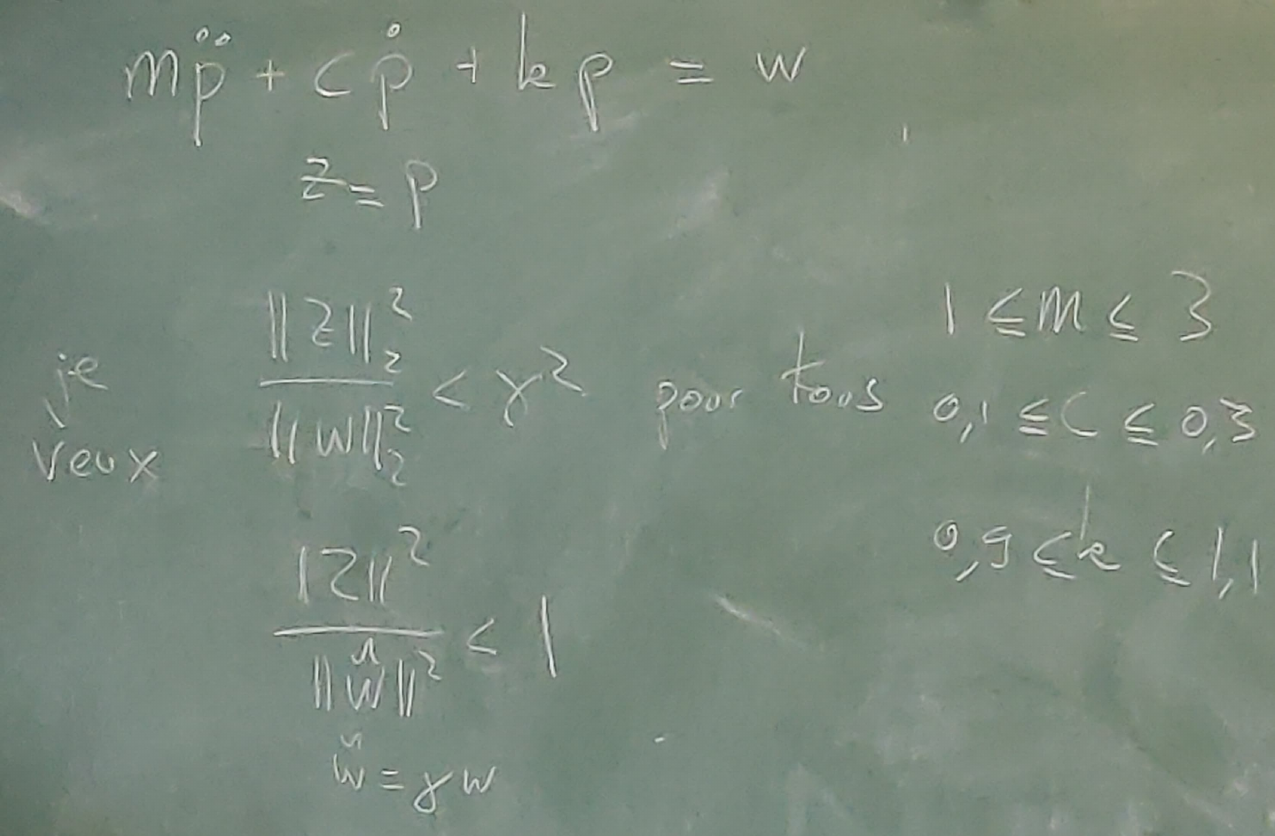 mp̈ + cṗ + kp = w
z = p
je veux ||z||₂² / ||w||₂² < γ² pour tous 1 ≤ m ≤ 3
0,1 ≤ c ≤ 0,3
0,9 ≤ k ≤ 1,1
|z||² / ||w̃||² < 1
w̃ = γw